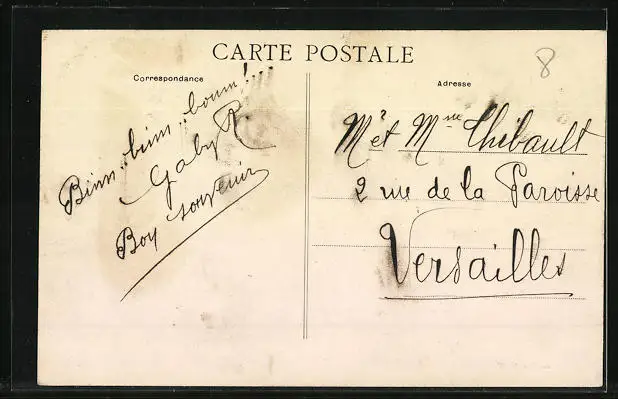 CARTE POSTALE
8
Correspondance
Bimm, bimm, boumm!...
Gaby R.
Boy souvenir
Adresse
Mr et Mme Thibault
2 rue de la Paroisse
Versailles